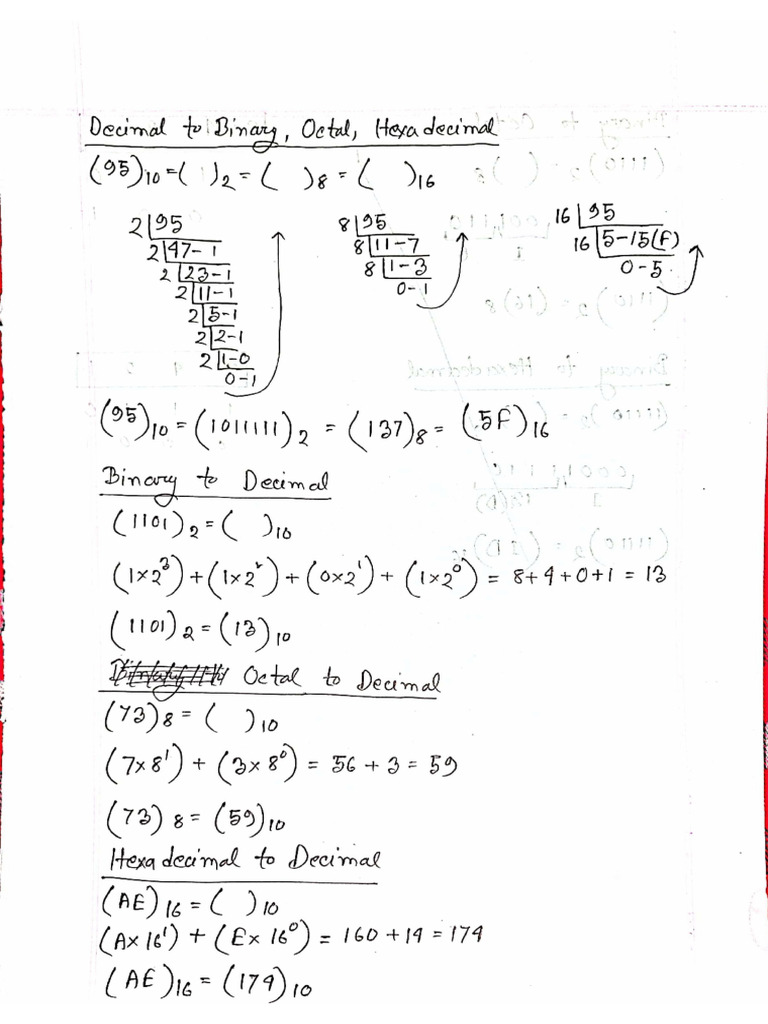 Decimal to Binary, Octal, Hexadecimal
(95)10 = ( )2 = ( )8 = ( )16
2 | 95
2 | 47 - 1
2 | 23 - 1
2 | 11 - 1
2 | 5 - 1
2 | 2 - 1
2 | 1 - 0
0 - 1
8 | 95
8 | 11 - 7
8 | 1 - 3
0 - 1
16 | 95
16 | 5 - 15(F)
0 - 5
(95)10 = (1011111)2 = (137)8 = (5F)16
Binary to Decimal
(1101)2 = ( )10
(1×2³) + (1×2²) + (0×2¹) + (1×2⁰) = 8+4+0+1 = 13
(1101)2 = (13)10
Octal to Decimal
(73)8 = ( )10
(7×8¹) + (3×8⁰) = 56 + 3 = 59
(73)8 = (59)10
Hexadecimal to Decimal
(AE)16 = ( )10
(A×16¹) + (E×16⁰) = 160 + 14 = 174
(AE)16 = (174)10